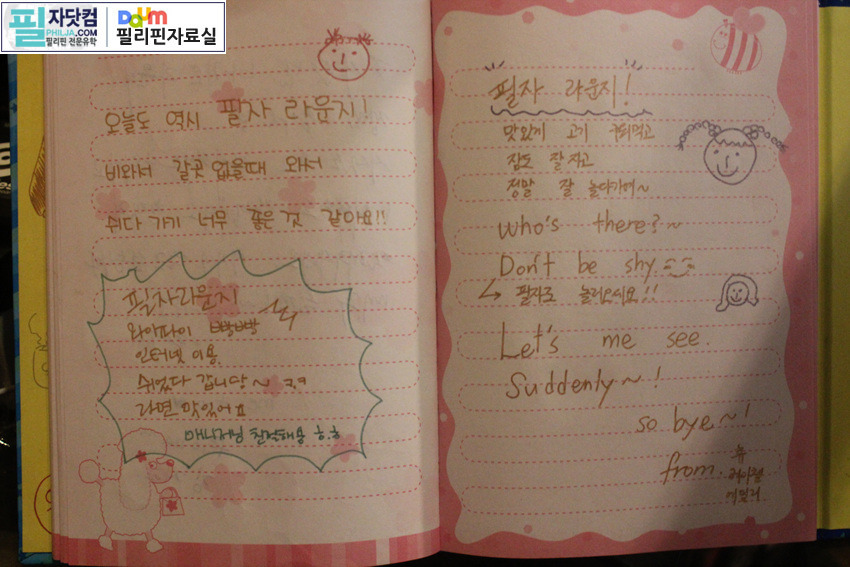 필자닷컴
PHILJA.COM
필리핀 전문유학
Daum
필리핀자료실
오늘도 역시 필자 라운지!
비와서 갈곳 없을때 와서
쉬다 가기 너무 좋은것 같아요!!
필자라운지
와이파이 빵빵
인터넷 이용.
쉬었다 갑니당~ ㅋ.ㅋ
라면 맛있어ㅛ
매니저님 친절해용 ㅎ.ㅎ
필자 라운지!
맛있게 고기 구워먹고
잠도 잘 자고
정말 잘 놀다가여~
Who's there?~
Don't be shy.
↳ 필자로 놀러오세요!!
Let's me see.
Suddenly~!
so bye~!
from.
에밀리